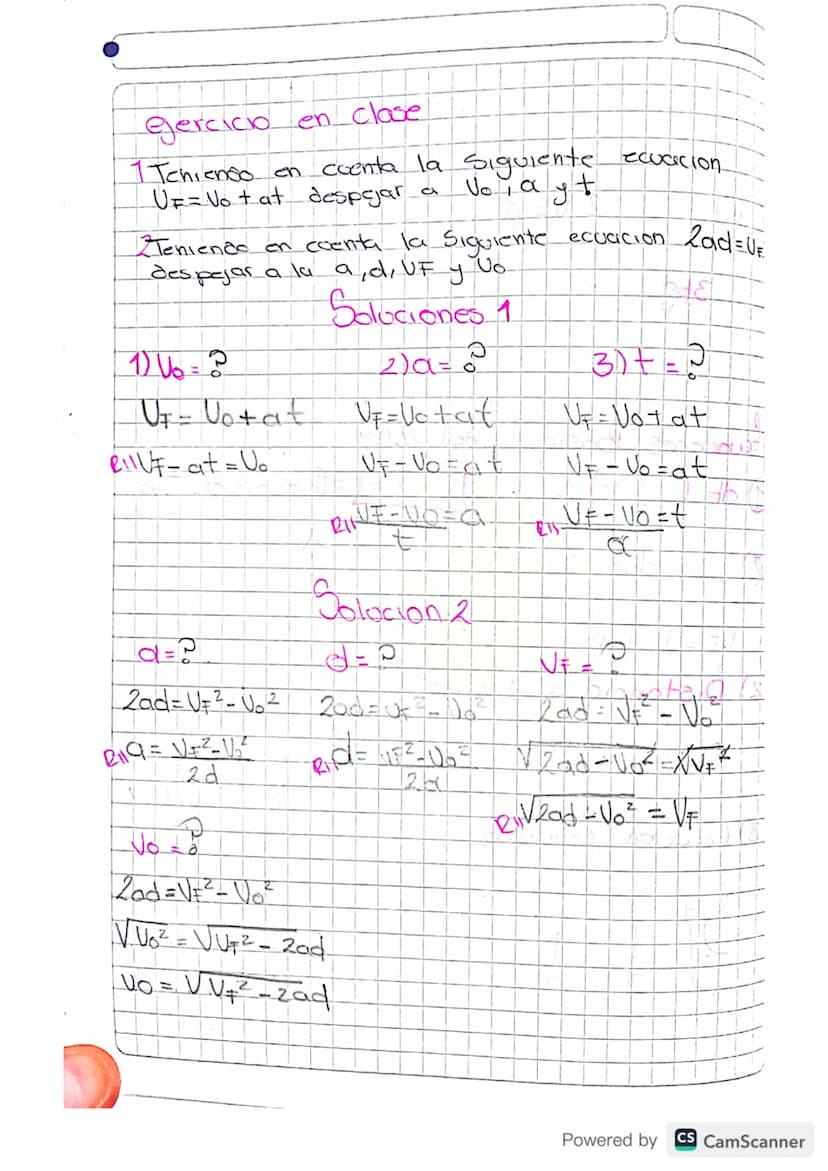 ejercicio en clase
1 Teniendo en cuenta la siguiente ecuacion
VF = Vo + at despejar a Vo, a y t
2 Teniendo en cuenta la siguiente ecuacion 2ad = VF
despejar a la a, d, VF y Vo
Soluciones 1
1) Vo = ? 2) a = ? 3) t = ?
VF = Vo + at VF = Vo + at VF = Vo + at
R// VF - at = Vo VF - Vo = at VF - Vo = at
R// VF - Vo = a R// VF - Vo = t
t a
Solocion 2
a = ? d = ? VF = ?
2ad = VF² - Vo² 2ad = VF² - Vo² 2ad = VF² - Vo²
R// a = VF² - Vo² R// d = VF² - Vo² √2ad - Vo² = √VF²
2d 2a
R// √2ad - Vo² = VF
Vo = ?
2ad = VF² - Vo²
√Vo² = √VF² - 2ad
Vo = √VF² - 2ad
Powered by CS CamScanner